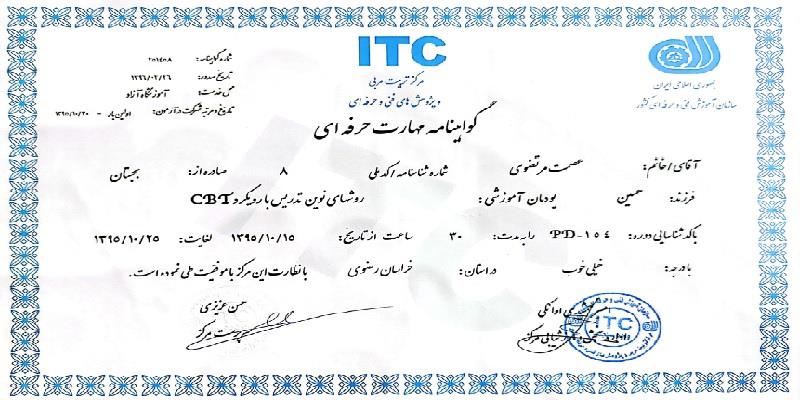 ITC
مرکز تربیت مربی
و پژوهش های فنی و حرفه ای
جمهوری اسلامی ایران
سازمان آموزش فنی و حرفه ای کشور
شماره گواهینامه:
تاریخ صدور: ۱۳۹۶/۰۲/۲۶
محل خدمت: آموزشگاه آزاد
تاریخ و مرتبه شرکت در آزمون: اولین بار - ۱۳۹۵/۱۰/۲۰
گواهینامه مهارت حرفه ای
آقای/خانم: عصمت مرتضوی شماره شناسنامه/کد ملی ۸ صادره از: بجستان
فرزند: حسین پودمان آموزشی: روشهای نوین تدریس با رویکرد CBT
با کد شناسایی دوره: PD-۱۵۴ را به مدت: ۳۰ ساعت از تاریخ: ۱۳۹۵/۱۰/۱۵ لغایت: ۱۳۹۵/۱۰/۲۵
با درجه: خیلی خوب در استان: خراسان رضوی با نظارت این مرکز با موفقیت طی نموده است.
حسن عزیزی
سرپرست مرکز
ITC